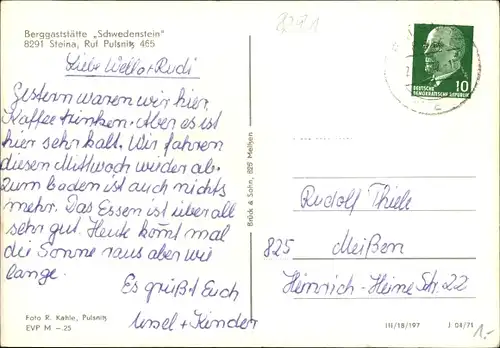 Berggaststätte „Schwedenstein"
8291 Steina, Ruf Pulsnitz 465
8291
Liebe Wella + Rudi
Gestern waren wir hier
Kaffee trinken. Aber es ist
hier sehr kalt. Wir fahren
diesen Mittwoch wieder ab.
Zum baden ist auch nichts
mehr. Das Essen ist überall
sehr gut. Heute komt mal
die Sonne raus aber wie
lange.
Es grüßt Euch
Ursel + Kinder
Foto R. Kahle, Pulsnitz
EVP M –.25
Brück & Sohn, 825 Meißen
10
DEUTSCHE
DEMOKRATISCHE REPUBLIK
c
Rudolf Thiele
825 Meißen
Heinrich-Heine Str. 22
III/18/197 J 04/71
1,-